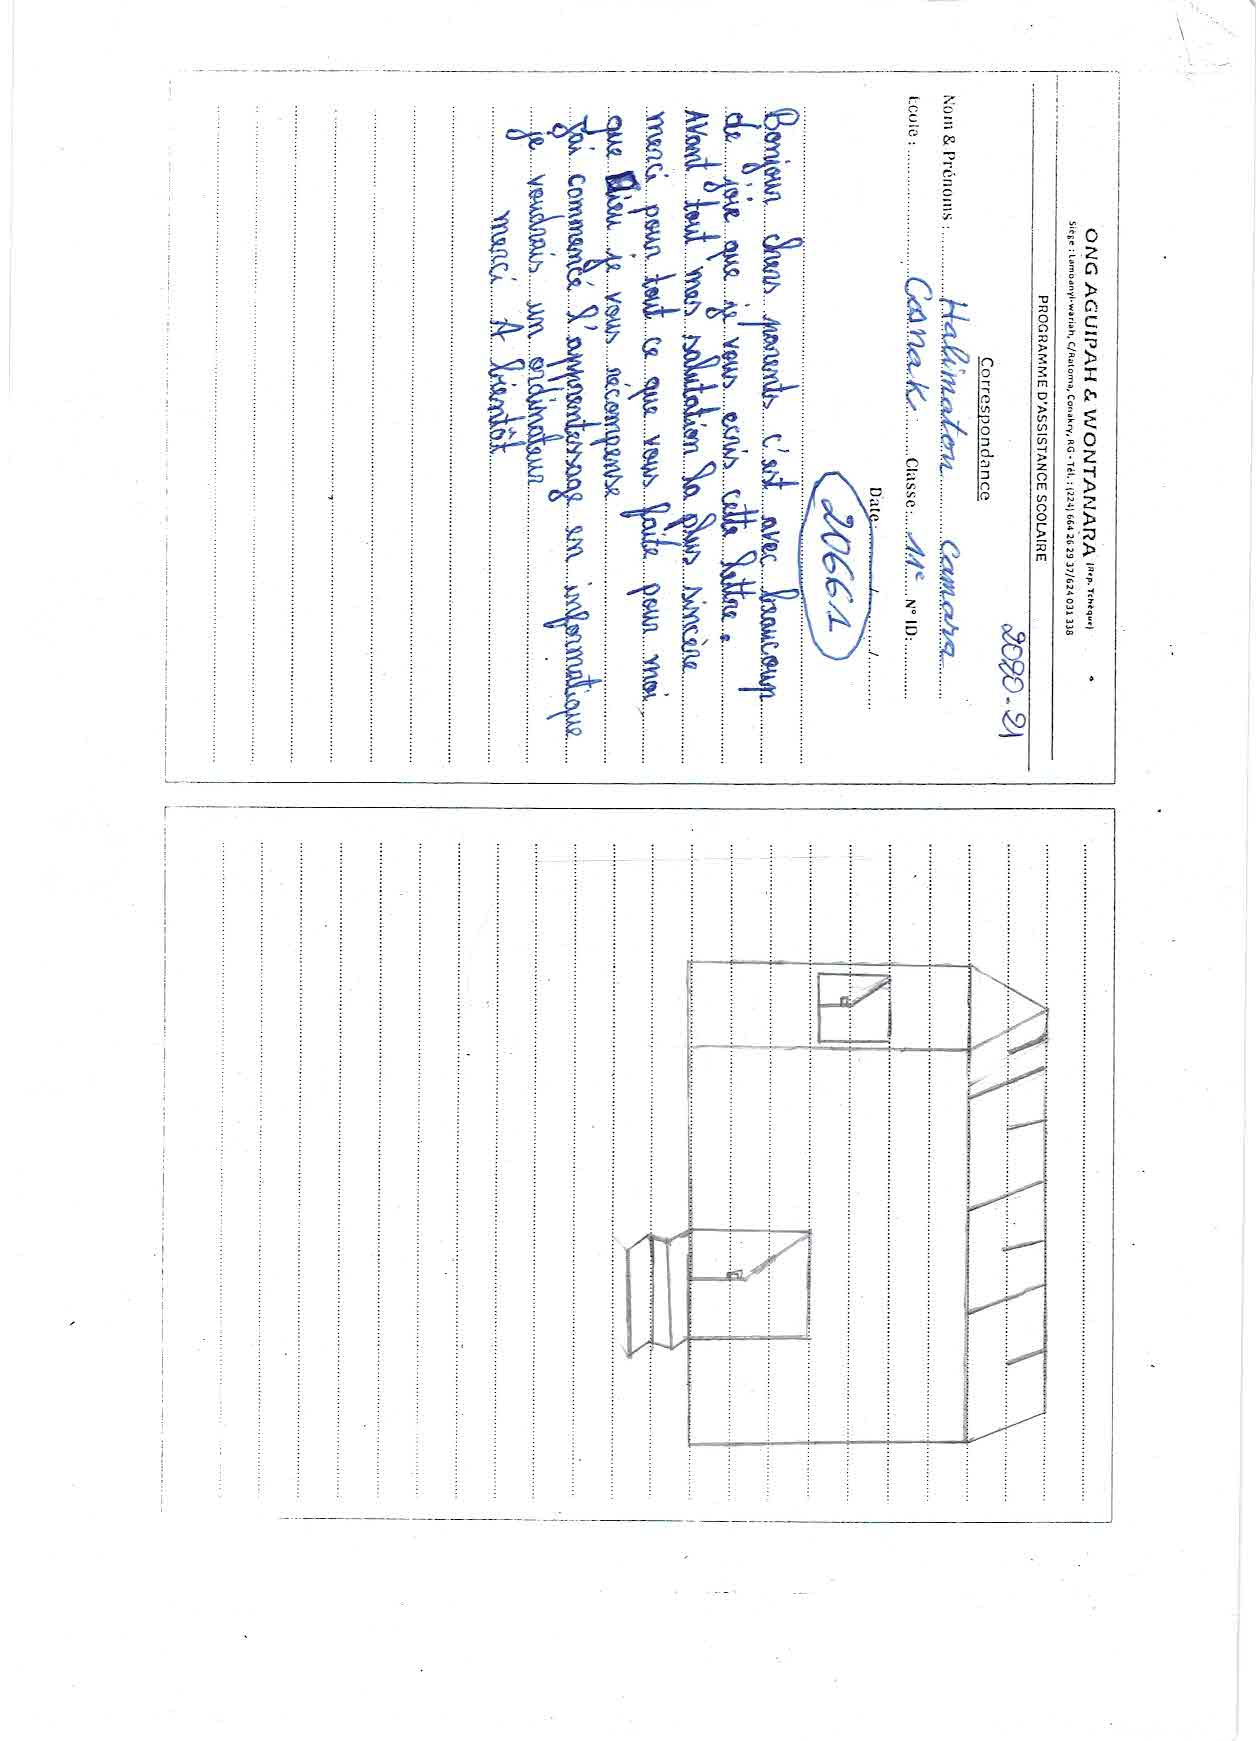 ONG AGUIPAH & WONTANARA (Rep. Tchèque)
Siège : Lamoanyi-wariah, C/Ratoma, Conakry, RG - Tél. : (224) 664 26 29 37/624 031 338
PROGRAMME D'ASSISTANCE SCOLAIRE
2020-21
Correspondance
Nom & Prénoms : Halimaton camara
Ecole : Casnak. Classe: 11e N° ID:
Date: / /
20661
Bonjour chers parents c'est avec beaucoup
de joie que je vous ecris cette lettre.
Avant tout mes salutation la plus sincère
merci pour tout ce que vous faite pour moi
que Dieu je vous récompense
J'ai commencé l'apprentessage en informatique
je voudrais un ordinateur
merci A bientôt